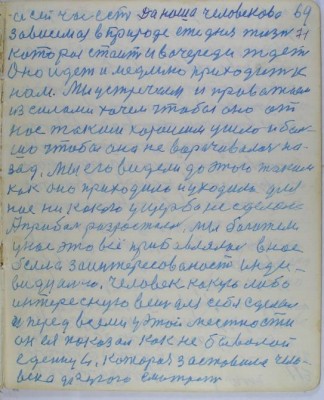 и сей час есть Да наша человеково 69
зависемая в природе ежедня жизн 71
которая стоит и вочереди ждет
Оно идет и медленно приходит к
нам. Мы устричаем и проважаем
из силами хочем чтобы оно от
нас таким хорошим ушло и бол
шо чтобы она не варочивалас на
зад. Мы его видели до этого таким
как оно приходило и уходило для
нас ни какого ущерба не сделало
Априбыл разростался, мы богатели
у нас это всё прибавлялос в нас
была заинтересованость инди
видуално, человек какую либо
интересную вещ для себя сделал
и перед всеми у этой местности
он ея показал как не бывалой
еденицу, которая заставила чело
века другого смотрет